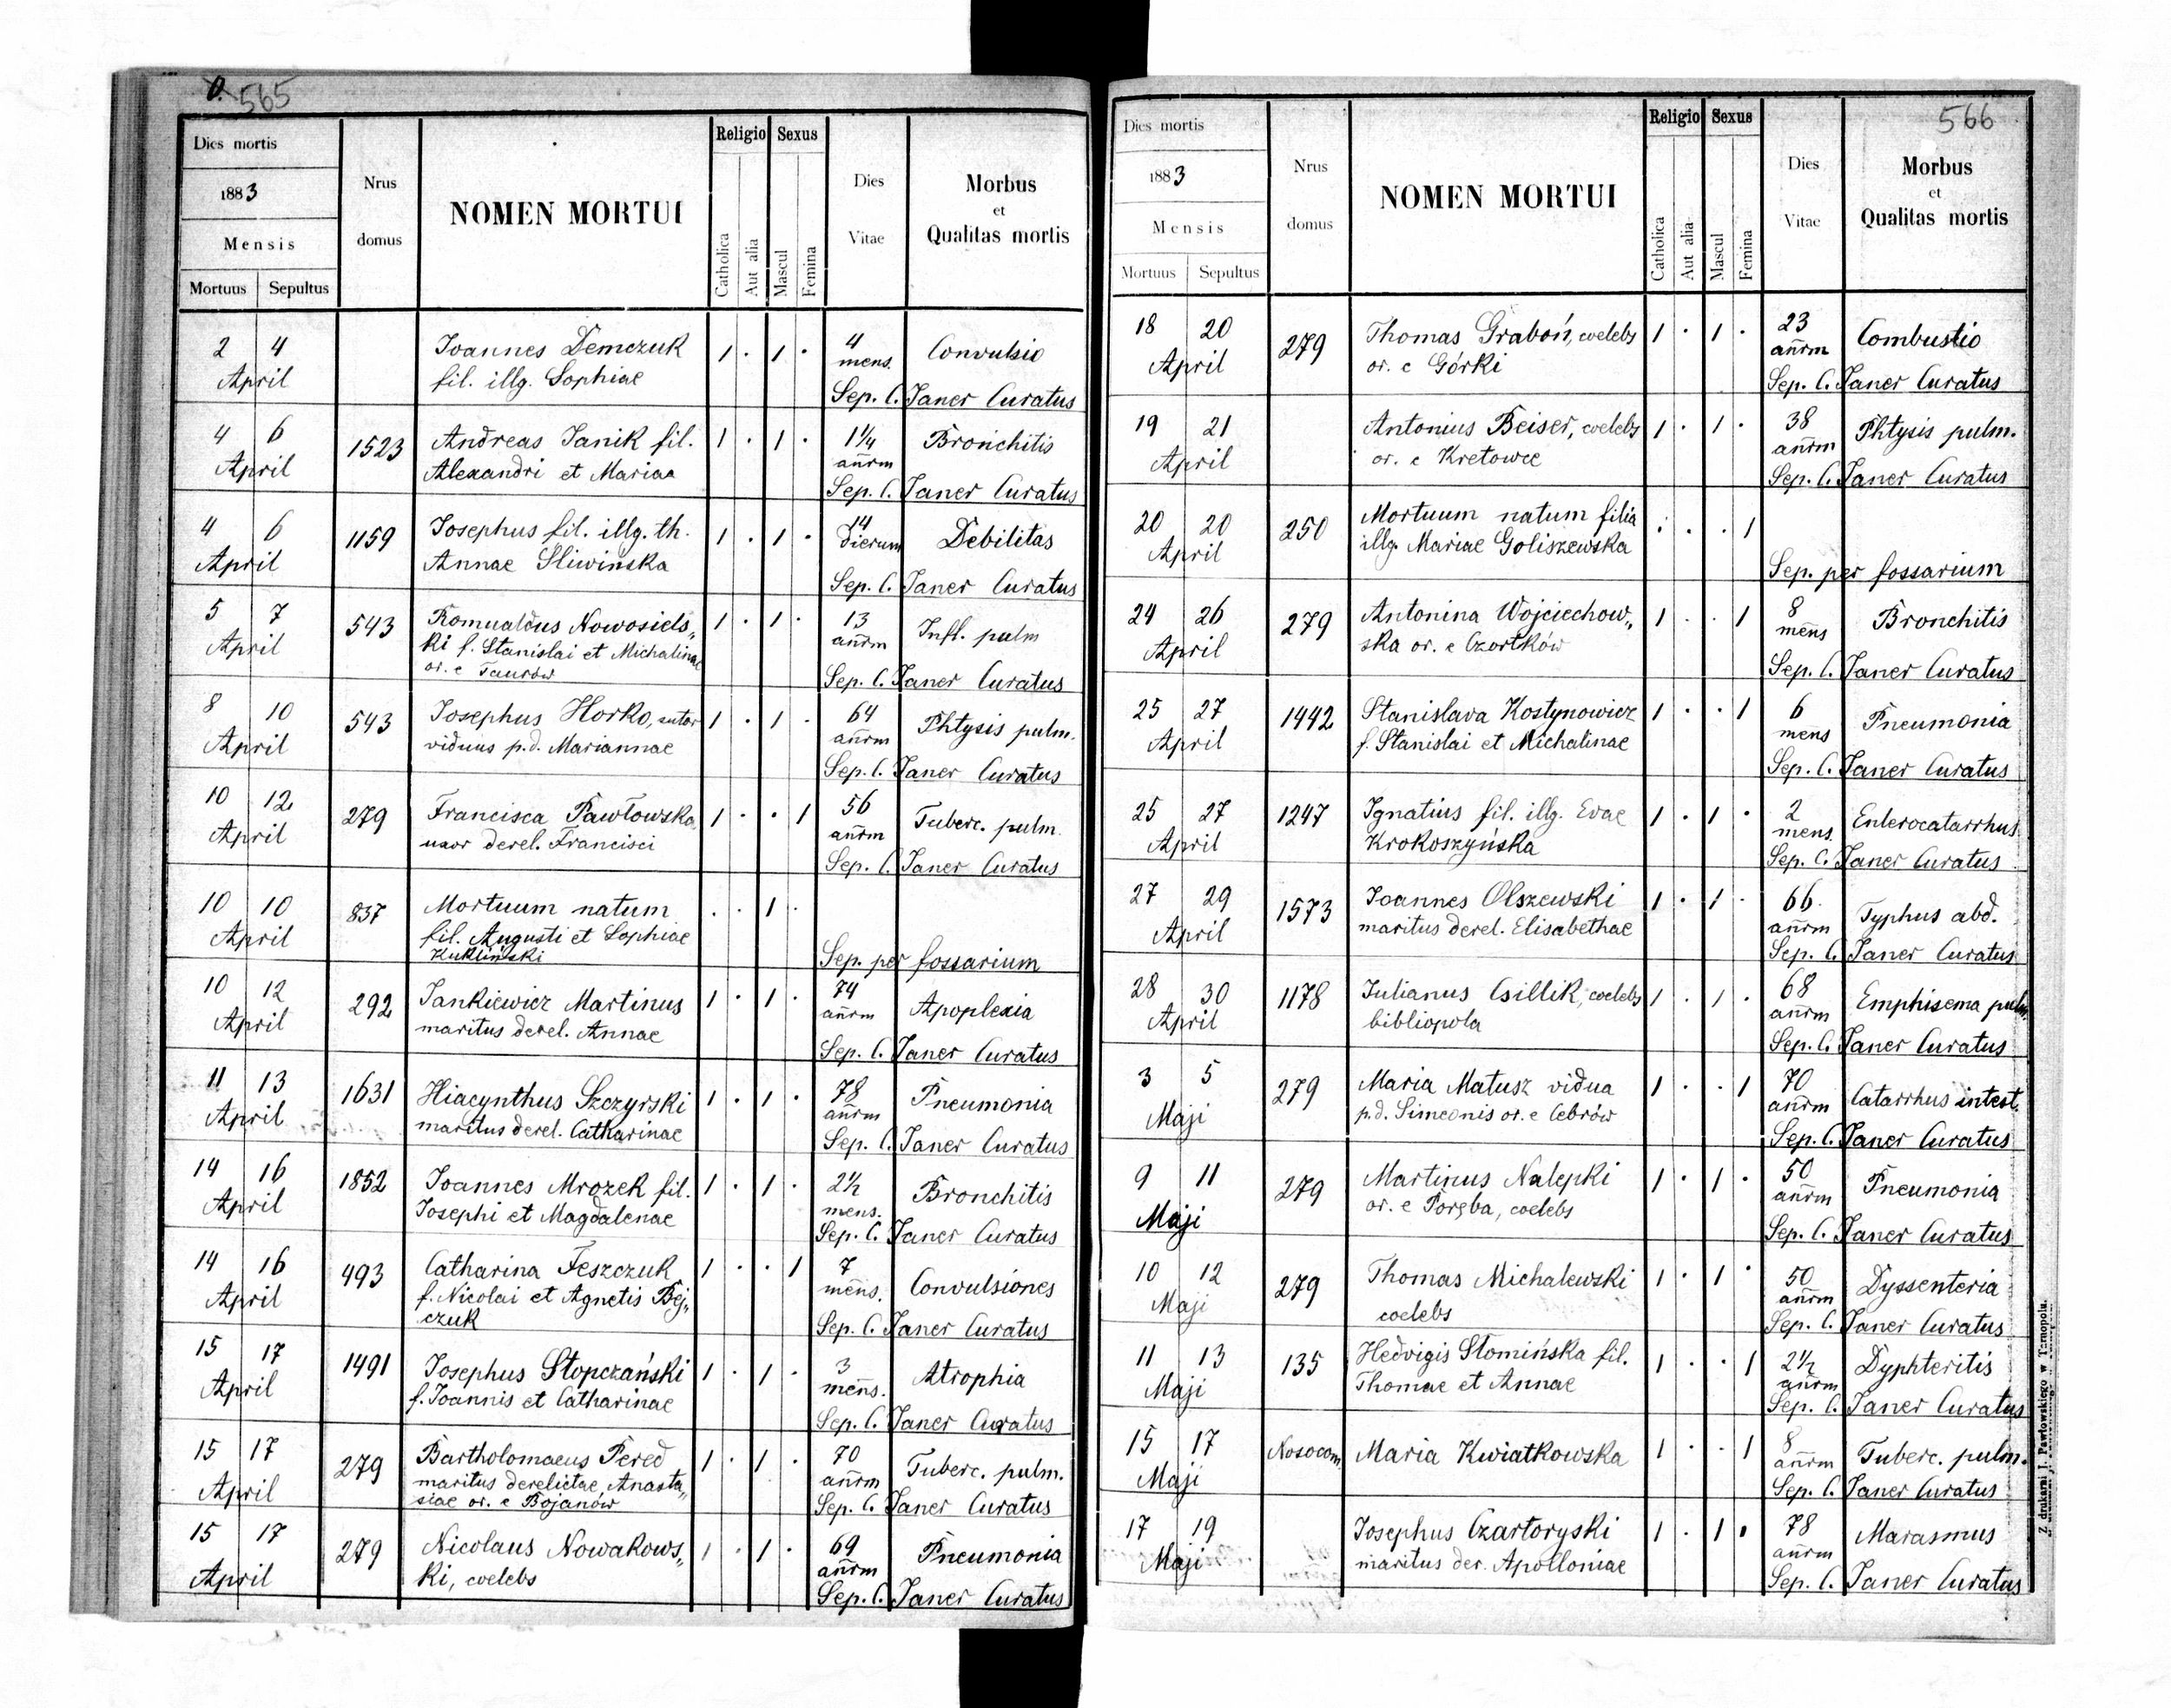 565
Dies mortis
1883
Mensis
Mortuus Sepultus
Nrus domus
NOMEN MORTUI
Religio
Catholica
Aut alia
Sexus
Mascul
Femina
Dies Vitae
Morbus
et
Qualitas mortis
2 4 Joannes Demczuk 1 . 1 . 4 Convulsio
April fil. illg. Sophiae mens.
Sep. C. Janer Curatus
4 6 1523 Andreas Janik fil. 1 . 1 . 1¼ Bronchitis
April Alexandri et Mariae añrm
Sep. C. Janer Curatus
4 6 1159 Josephus fil. illg. th. 1 . 1 . 14 Debilitas
April Annae Sliwinska dierum
Sep. C. Janer Curatus
5 7 543 Romualdus Nowosiels„ 1 . 1 . 13 Infl. pulm
April ki f. Stanislai et Michalinae añrm
or. e Taurów
Sep. C. Janer Curatus
8 10 543 Josephus Horko, sutor 1 . 1 . 64 Phtysis pulm.
April viduus p.d. Mariannae añrm
Sep. C. Janer Curatus
10 12 279 Francisca Pawłowska, 1 . . 1 56 Tuberc. pulm.
April uxor derel. Francisci añrm
Sep. C. Janer Curatus
10 10 837 Mortuum natum . . 1 .
April fil. Augusti et Sophiae
Kukliński
Sep. per fossarium
10 12 292 Jankiewicz Martinus 1 . 1 . 74 Apoplexia
April maritus derel. Annae añrm
Sep. C. Janer Curatus
11 13 1631 Hiacynthus Szczyrski 1 . 1 . 78 Pneumonia
April maritus derel. Catharinae añrm
Sep. C. Janer Curatus
14 16 1852 Joannes Mrozek fil. 1 . 1 . 2½ Bronchitis
April Josephi et Magdalenae mens.
Sep. C. Janer Curatus
14 16 493 Catharina Feszczuk 1 . . 1 7 Convulsiones
April f. Nicolai et Agnetis Bej„ mens.
czuk
Sep. C. Janer Curatus
15 17 1491 Josephus Stopczański 1 . 1 . 3 Atrophia
April f. Joannis et Catharinae mens.
Sep. C. Janer Curatus
15 17 279 Bartholomaeus Pered 1 . 1 . 70 Tuberc. pulm.
April maritus derelictae Anasta„ añrm
siae or. e Bojanów
Sep. C. Janer Curatus
15 17 279 Nicolaus Nowakows„ 1 . 1 . 69 Pneumonia
April ki, coelebs añrm
Sep. C. Janer Curatus
566
Dies mortis
1883
Mensis
Mortuus Sepultus
Nrus domus
NOMEN MORTUI
Religio
Catholica
Aut alia
Sexus
Mascul
Femina
Dies Vitae
Morbus
et
Qualitas mortis
18 20 279 Thomas Graboń, coelebs 1 . 1 . 23 Combustio
April or. e Górki añrm
Sep. C. Janer Curatus
19 21 Antonius Beiser, coelebs 1 . 1 . 38 Phtysis pulm.
April or. e Kretowce añrm
Sep. C. Janer Curatus
20 20 250 Mortuum natum filia . . . 1
April illg. Mariae Goliszewska
Sep. per fossarium
24 26 279 Antonina Wojciechow„ 1 . . 1 8 Bronchitis
April ska or. e Czortków mens
Sep. C. Janer Curatus
25 27 1442 Stanislava Kostynowicz 1 . . 1 6 Pneumonia
April f. Stanislai et Michalinae mens
Sep. C. Janer Curatus
25 27 1247 Ignatius fil. illg. Evae 1 . 1 . 2 Enterocatarrhus
April Krokoszyńska mens.
Sep. C. Janer Curatus
27 29 1573 Joannes Olszewski 1 . 1 . 66 Typhus abd.
April maritus derel. Elisabethae añrm
Sep. C. Janer Curatus
28 30 1178 Julianus Csillik, coelebs 1 . 1 . 68 Emphisema pulm.
April bibliopola añrm
Sep. C. Janer Curatus
3 5 279 Maria Matusz vidua 1 . . 1 70 Catarrhus intest.
Maji p.d. Simeonis or. e Cebrów añrm
Sep. C. Janer Curatus
9 11 279 Martinus Nalepki 1 . 1 . 50 Pneumonia
Maji or. e Poręba, coelebs añrm
Sep. C. Janer Curatus
10 12 279 Thomas Michalewski 1 . 1 . 50 Dyssenteria
Maji coelebs añrm
Sep. C. Janer Curatus
11 13 135 Hedvigis Słomińska fil. 1 . . 1 2½ Dyphteritis
Maji Thomae et Annae añrm
Sep. C. Janer Curatus
15 17 Nosocom. Maria Kwiatkowska 1 . . 1 8 Tuberc. pulm.
Maji añrm
Sep. C. Janer Curatus
17 19 Josephus Czartoryski 1 . 1 . 78 Marasmus
Maji maritus der. Apolloniae añrm
Sep. C. Janer Curatus
Z drukarni J. Pawłowskiego w Tarnopolu.